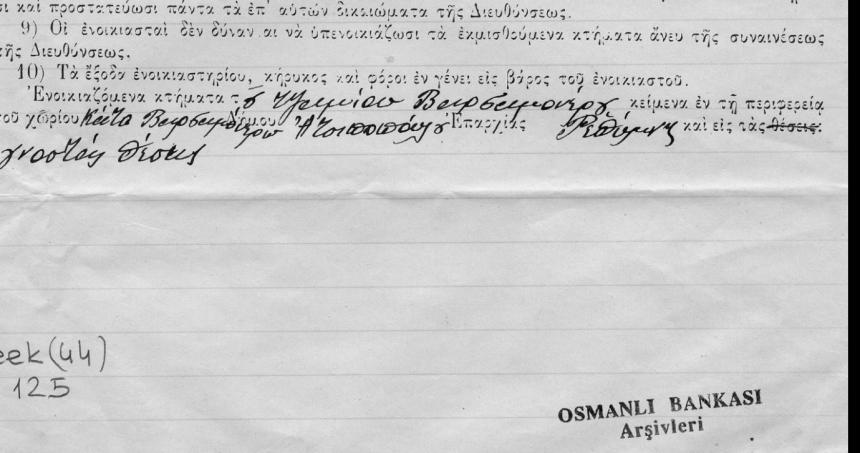 σι καὶ προστατεύωσι πάντα τὰ ἐπ' αὐτῶν δικαιώματα τῆς Διευθύνσεως.
9) Οἱ ἐνοικιασταὶ δὲν δύναν αι νὰ ὑπενοικιάζωσι τὰ ἐκμισθούμενα κτήματα ἄνευ τῆς συναινέσεως
τῆς Διευθύνσεως.
10) Τὰ ἔξοδα ἐνοικιαστηρίου, κήρυκος καὶ φόροι ἐν γένει εἰς βάρος τοῦ ἐνοικιαστοῦ.
Ἐνοικιαζόμενα κτήματα κείμενα ἐν τῇ περιφερείᾳ
τοῦ χωρίου Κάτω Δήμου Ἐπαρχίας Ρεθύμνης καὶ εἰς τὰς θέσεις:
θέσεις
eek (44)
125
OSMANLI BANKASI
Arşivleri